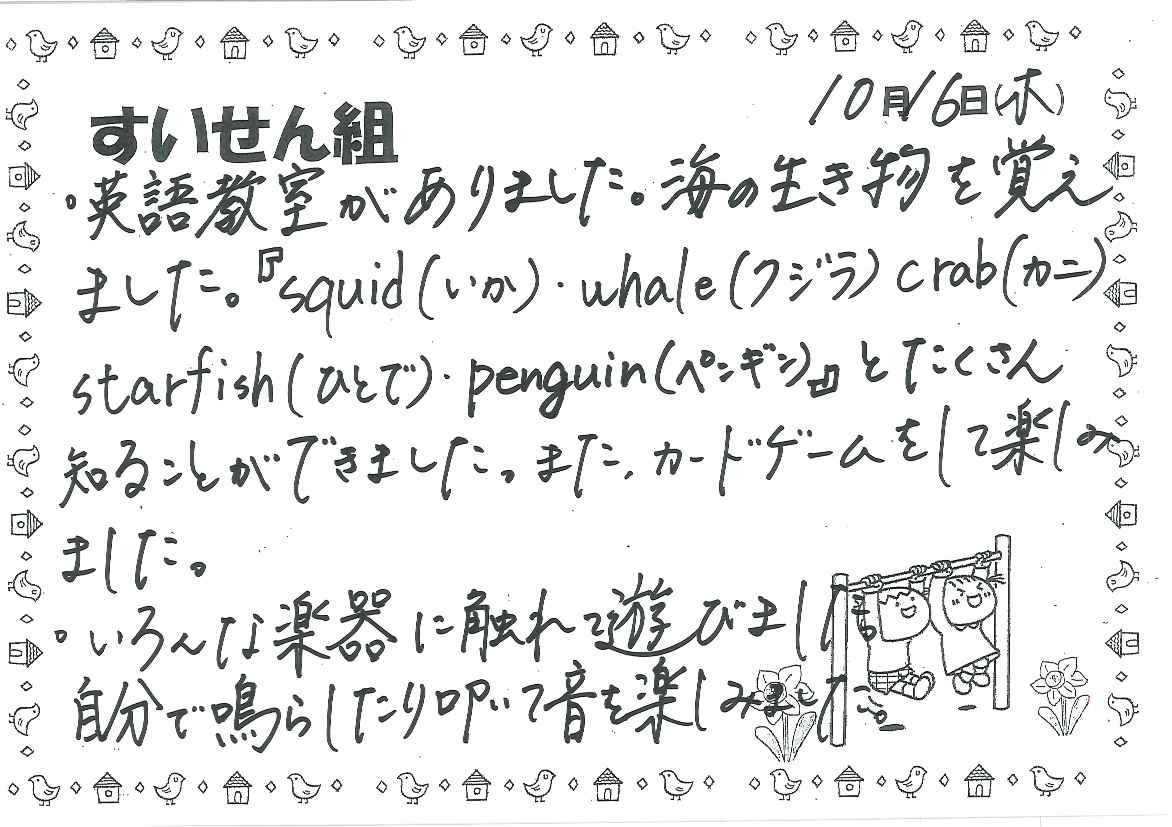 10月16日(木)
すいせん組
。英語教室がありました。海の生き物を覚え
ました。『squid(いか)・whale(クジラ)crab(カニ)
starfish(ひとで)・penguin(ペンギン)』とたくさん
知ることができました。また、カードゲームをして楽しみ
ました。
。いろんな楽器に触れて遊びました。
自分で鳴らしたり叩いて音を楽しみました。